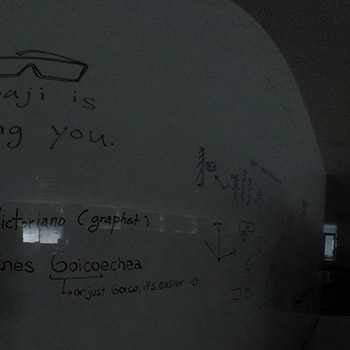 aji is
ng you.
ictoriano (graphat)
ines Goicoechea
or just Goico, it's easier :)